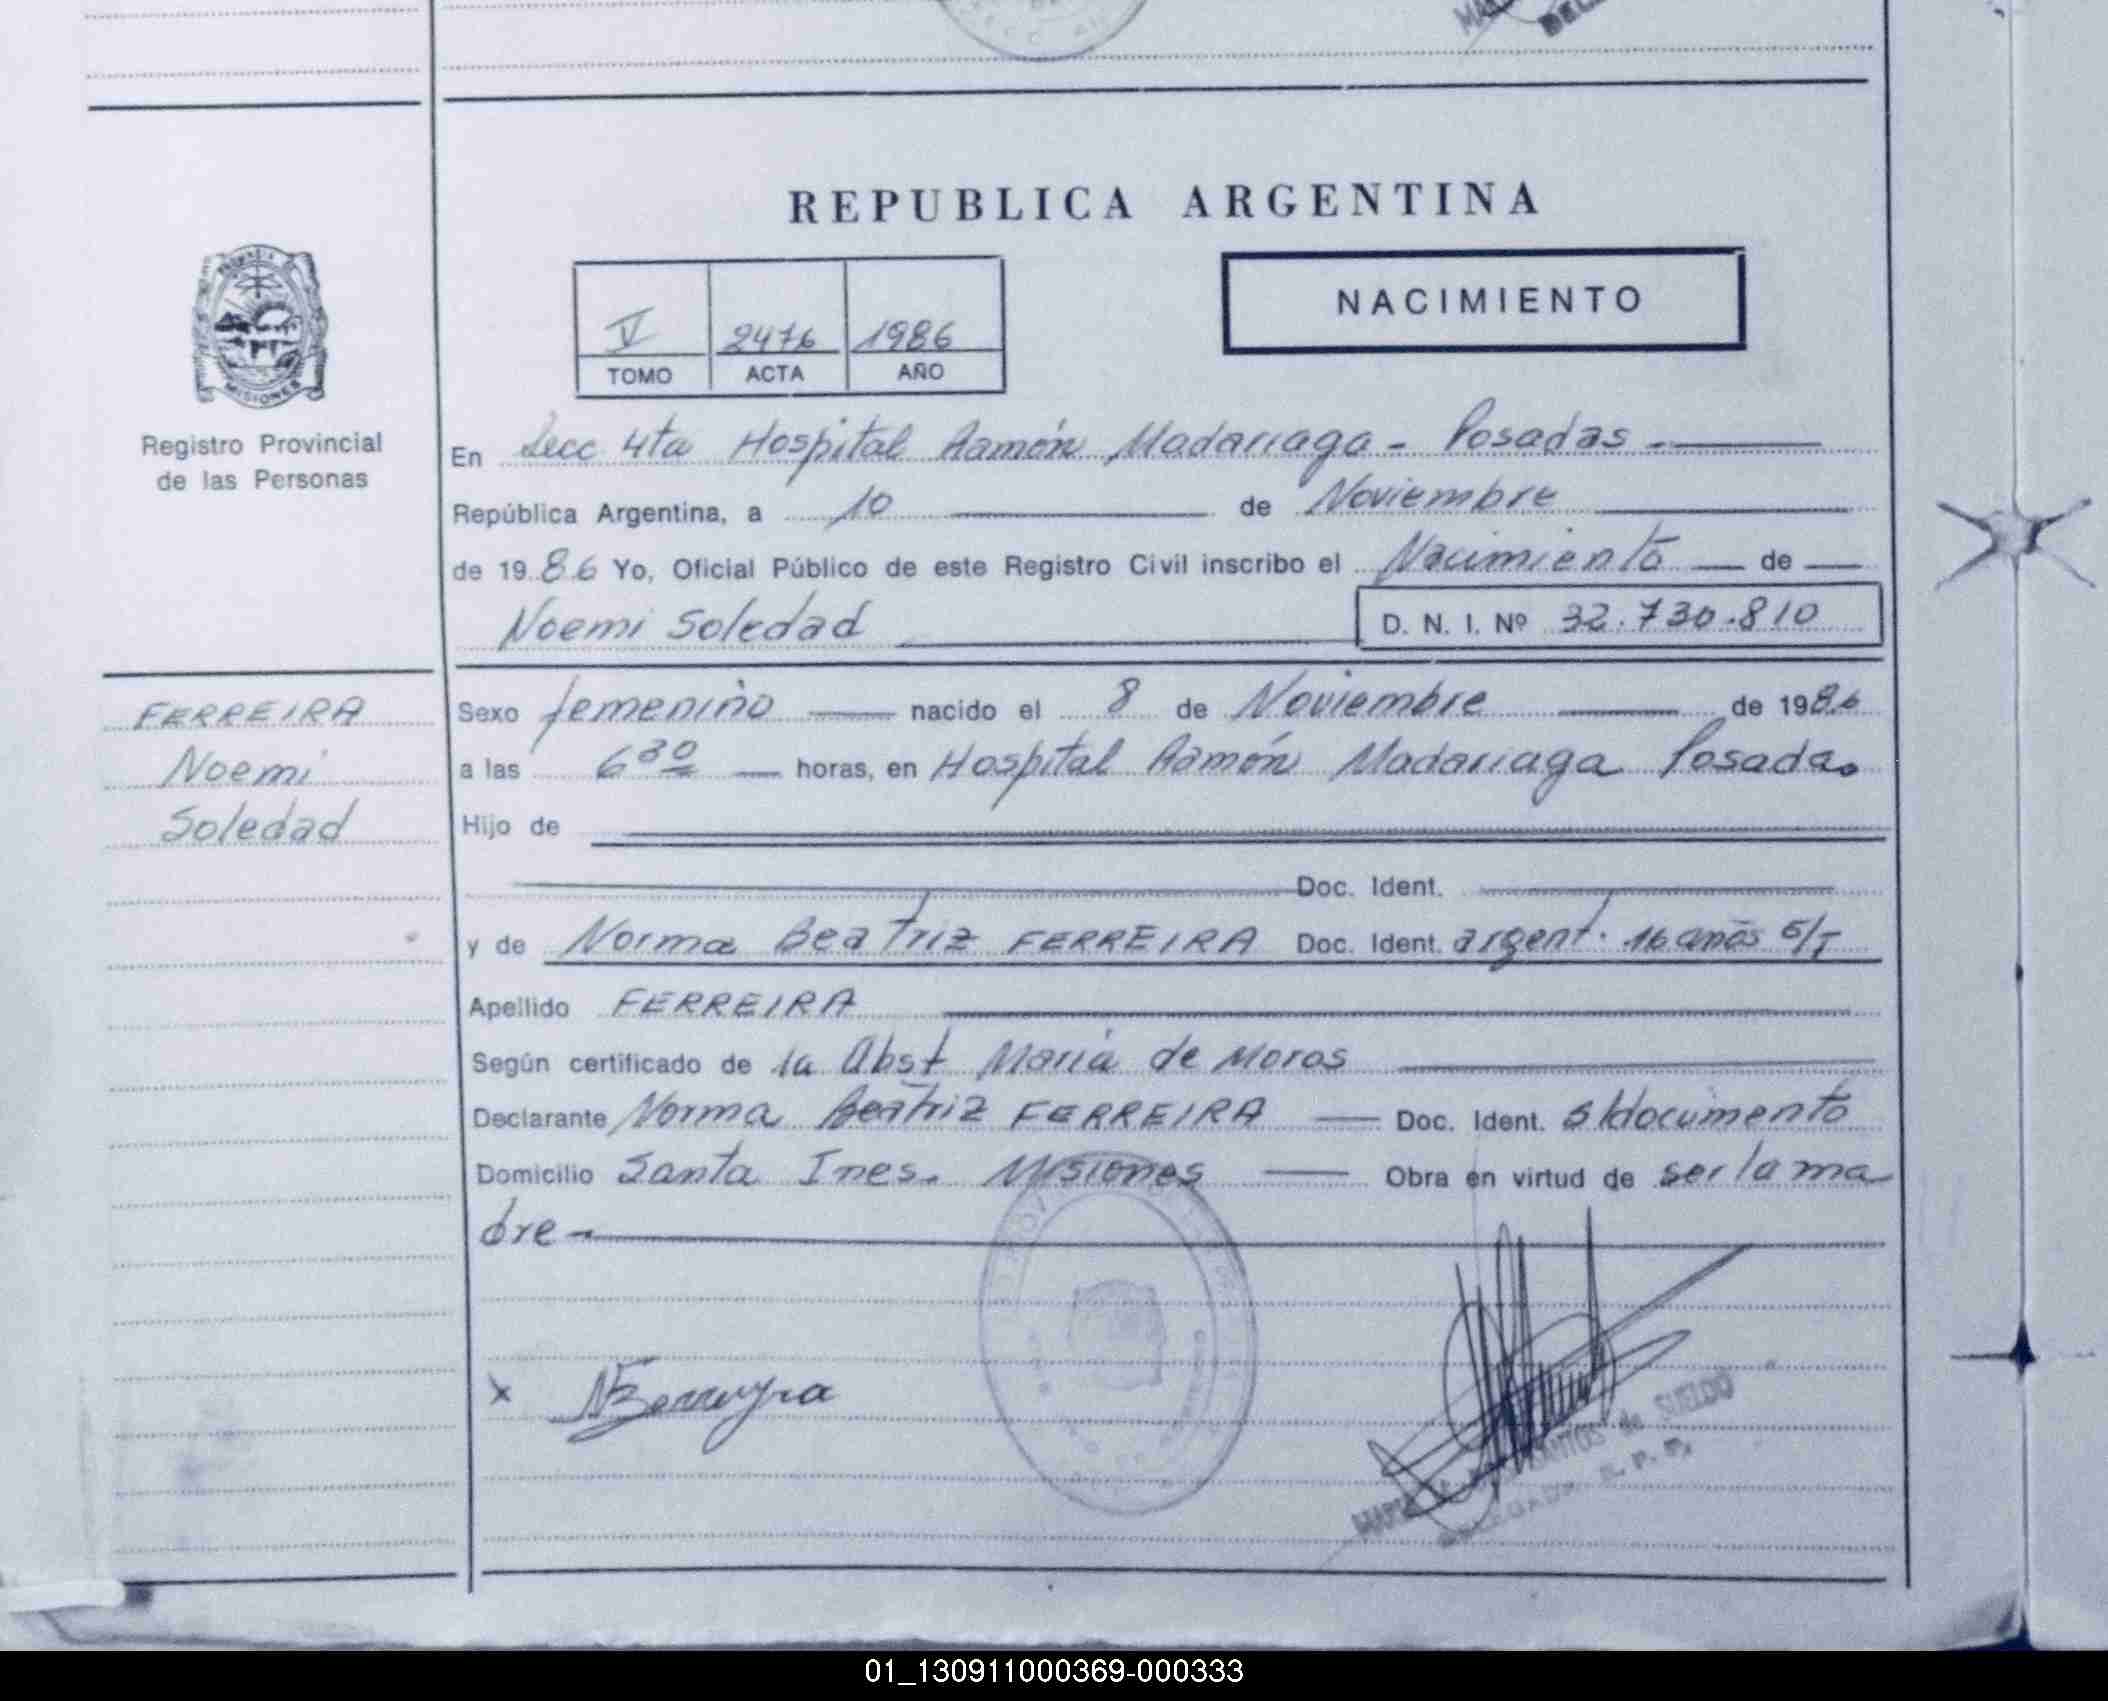 REPUBLICA ARGENTINA
V 2476 1986
TOMO ACTA AÑO
NACIMIENTO
PROVINCIA DE
MISIONES
Registro Provincial
de las Personas
En Secc 4ta Hospital Ramón Madariaga - Posadas -
República Argentina, a 10 de Noviembre
de 1986 Yo, Oficial Público de este Registro Civil inscribo el Nacimiento de
Noemi Soledad D. N. I. Nº 32.730.810
FERREIRA
Noemi
Soledad
Sexo femenino nacido el 8 de Noviembre de 1986
a las 6 30 horas, en Hospital Ramón Madariaga Posadas
Hijo de
Doc. Ident.
y de Norma Beatriz FERREIRA Doc. Ident. argent. 16 años
Apellido FERREIRA
Según certificado de la Obst María de Moros
Declarante Norma Beatriz FERREIRA Doc. Ident. s/documento
Domicilio Santa Ines. Misiones Obra en virtud de ser la ma
dre -
x
de SUELDO
R. P. P.
01_130911000369-000333